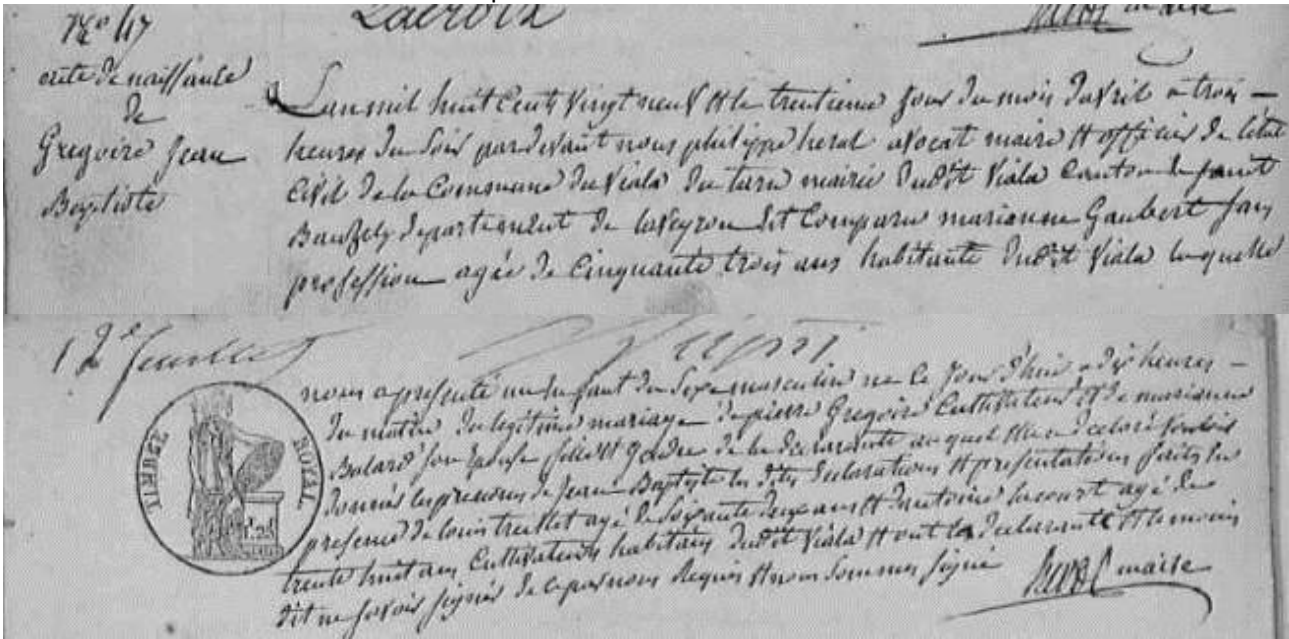 Lacroix
maire
Nº 47
acte de naissance
de
Gregoire Jean
Baptiste
L'an mil huit cents vingt neuf et le trentieme jour du mois d'avril a trois
heures du soir pardevant nous philippe heral avocat maire et officier de l'état
civil de la Commune du viala du tarn mairie dudit viala canton de saint
Bauzely departement de laveyron est comparu marianne Gaubert sans
profession agée de cinquante trois ans habitante dudit viala laquelle
12e feuillet
nous a presenté un enfant du sexe masculin né le jour d'hier a dix heures
du matin du legitime mariage de pierre Gregoire cultivateur et de marianne
son epouse fille et gendre de la declarante auquel elle a declaré vouloir
donner les prenoms de Jean Baptiste les dites declarations et presentations faites en
presence de louis agé de soixante deux ans et d'antoine lacourt agé de
trente huit ans cultivateurs habitans dudit viala et ont la declarante et temoins
dit ne savoir signer de ce par nous requis et nous sommes signé
heral maire
TIMBRE ROYAL